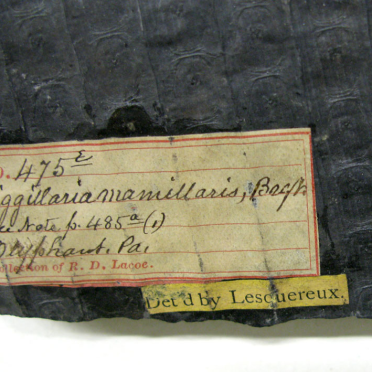 O. 475 E
iggillaria mamillaris, Brgt.
ee Note p. 485 a (1)
Olyphant. Pa.
ollection of R. D. Lacoe.
Det'd by Lesquereux.